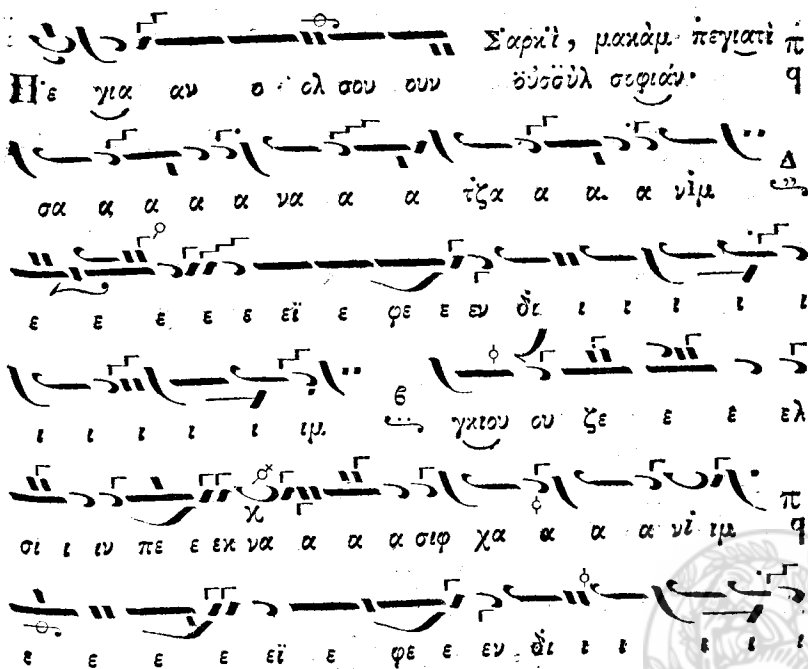 Σαρκὶ, μακὰμ πεγιατὶ π
Πε για αν ο ολ σου ουν οὐσσὺλ σοφιάν. q
σα α α α α να α α τζα α α. α νὶμ Δ
ε ε ε ε ε εϊ ε φε ε εν δι ι ι ι ι ι
ι ι ι ι ι ιμ ϐ γκιου ου ζε ε ε ελ
σι ι ιν πε ε εκ να α α α σιφ χα α α α νὶ ιμ π q
ε ε ε ε εϊ ε φε ε εν δι ι ι ι ι ι